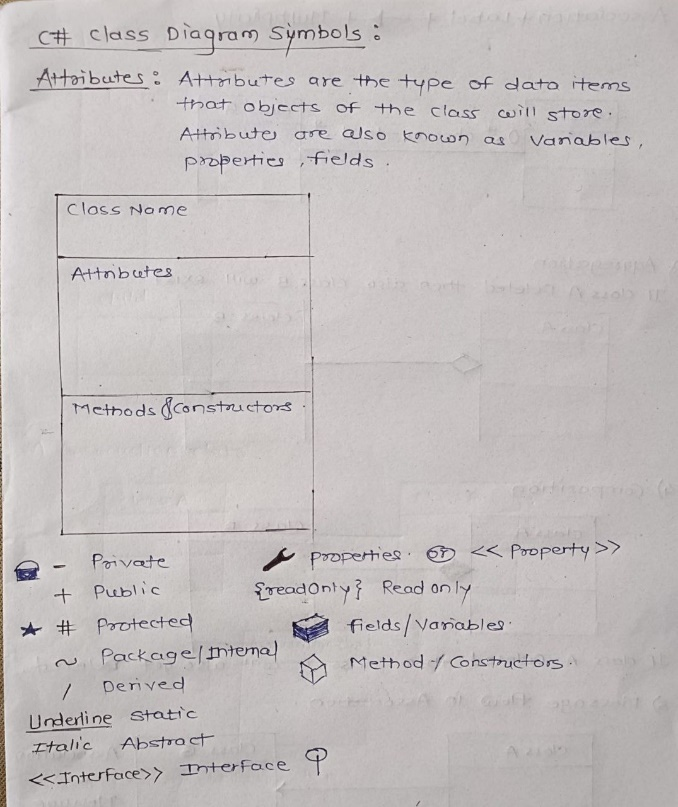 C# Class Diagram Symbols :
Attributes : Attributes are the type of data items
that objects of the class will store.
Attributes are also known as variables,
properties, fields.
Class Name
Attributes
Methods & Constructors.
- Private
+ Public
# Protected
~ Package/Internal
/ Derived
Underline Static
Italic Abstract
<<Interface>> Interface
properties. or << Property>>
{readOnly} Read only
fields/Variables.
Method / Constructors.